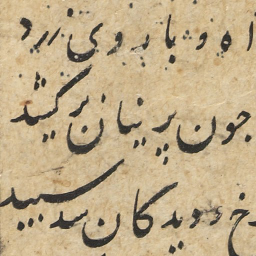 اه و با روی زرد
جون پرنیان برکشید
رخ و دیدکان سبید